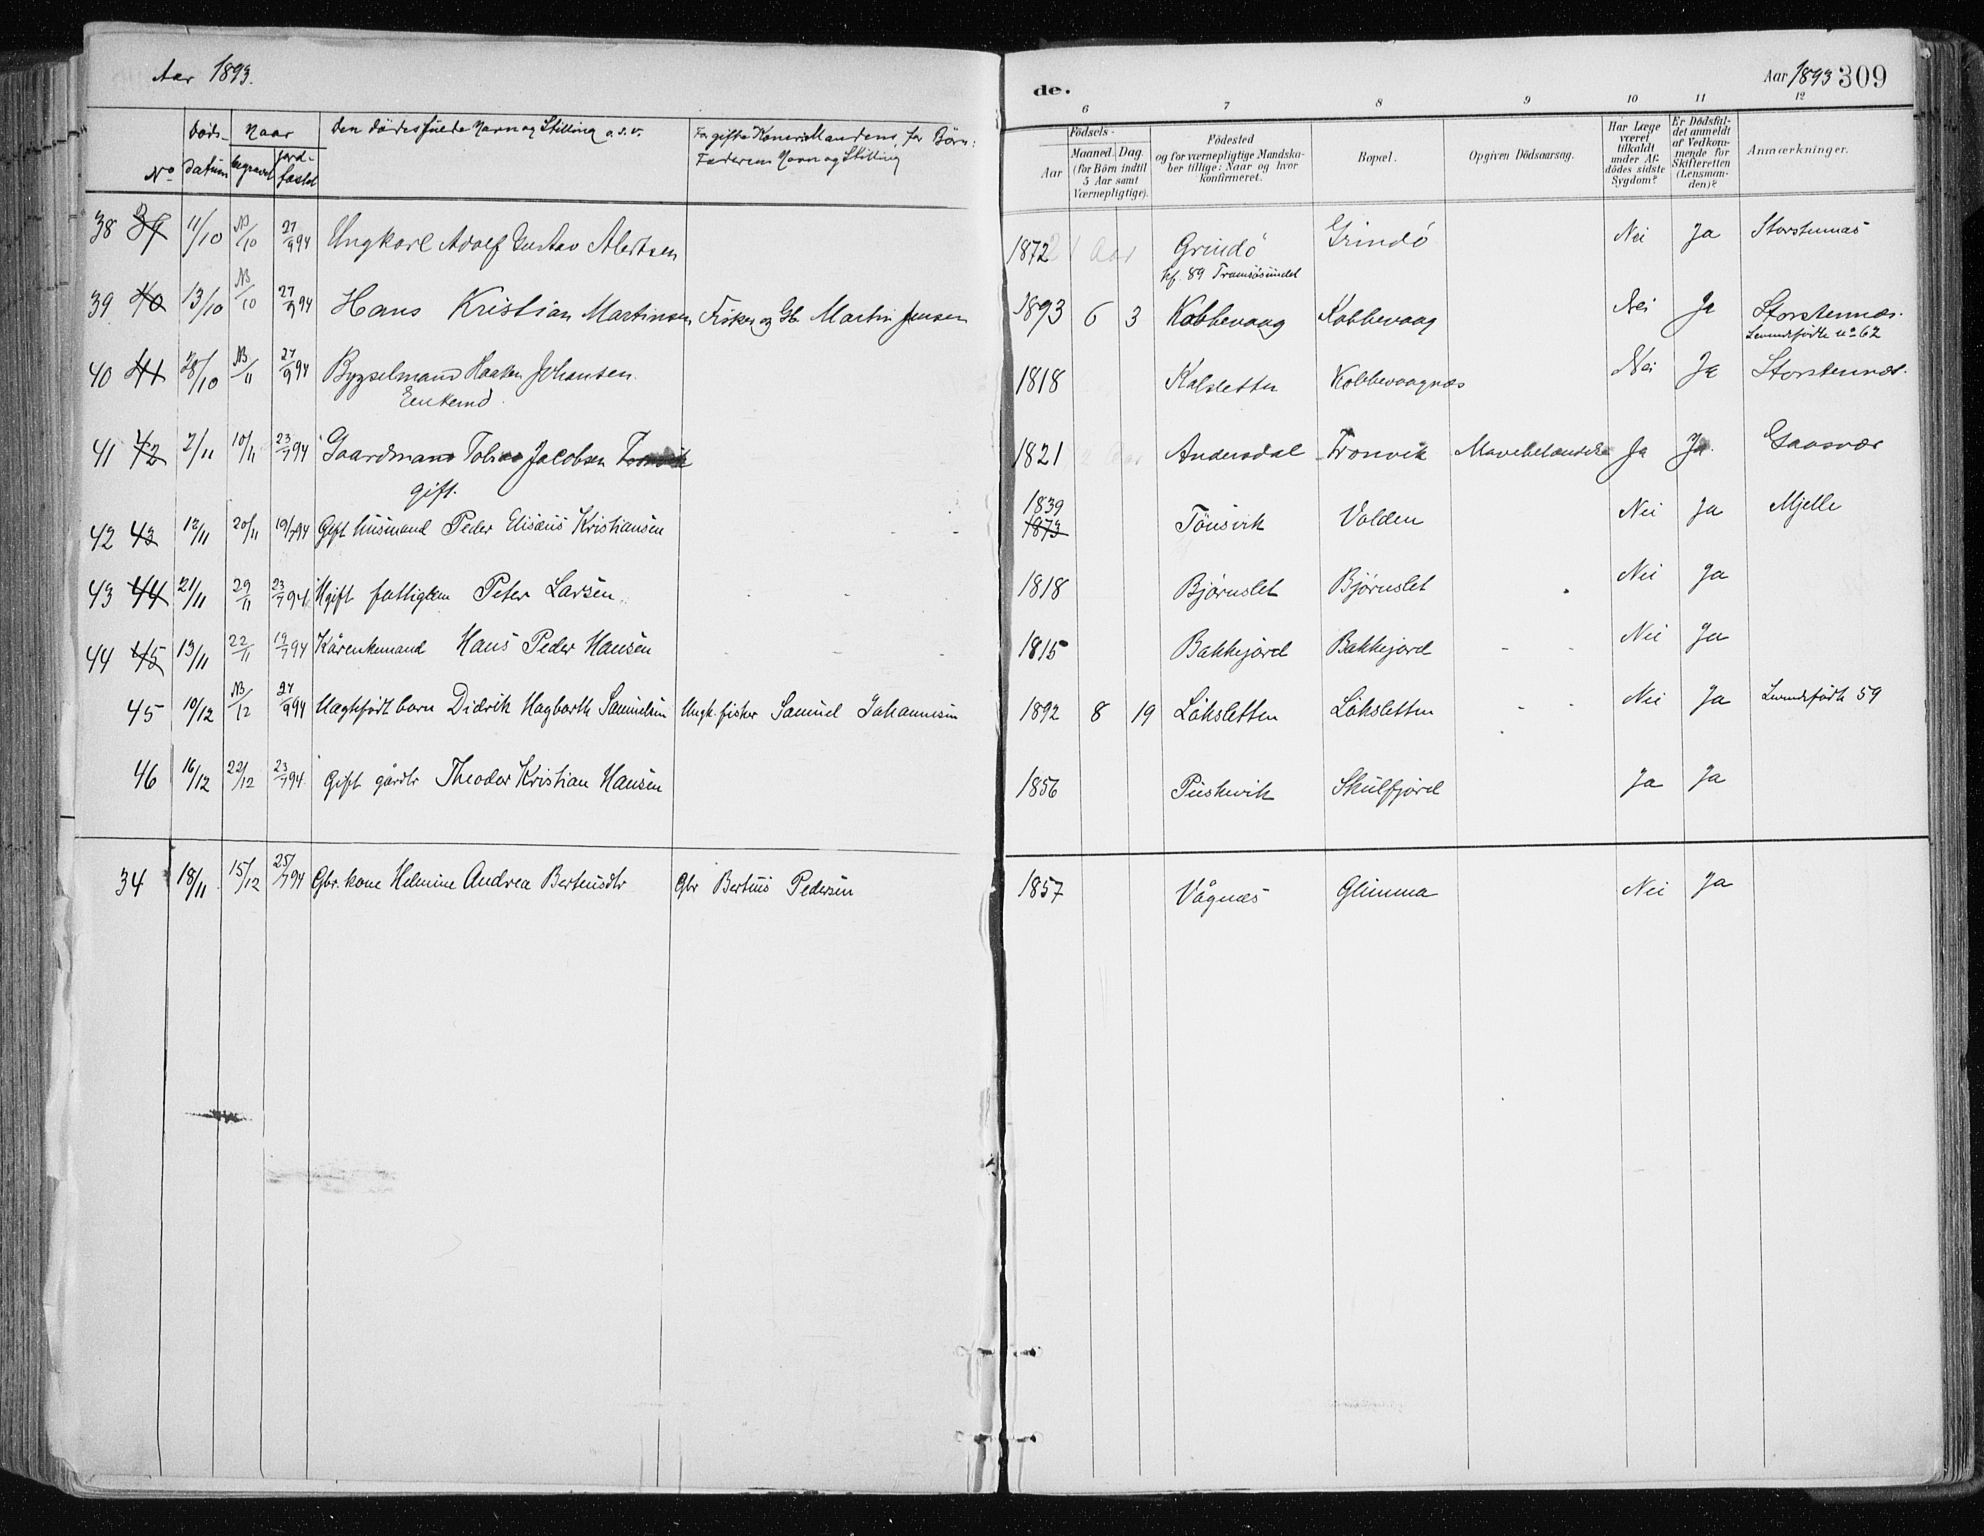 Aar 1893.
No
Døds-datum
Naar
begravet
jord-fæstet
Den dødes fulde Navn og Stilling o.s.v.
For gifte Koner: Mandens, for Børn: Faderens Navn og Stilling
38 39 11/10 NB/10 27/9 94 Ungkarl Adolf Gustav Albertsen
39 40 13/10 NB/10 27/9 94 Hans Kristian Martinsen Fisker og Gb. Martin Jensen
40 41 28/10 NB/11 27/9 94 Bygselmand Haakon Johansen.
Enkemd.
41 42 2/11 10/11 23/7 94 Gaardmand Tobias Jacobsen Tronvik
gift.
42 43 12/11 20/11 19/7 94 Gift husmand Peder Elisæus Kristiansen
43 44 21/11 29/11 23/7 94 Ugift fattiglem Peter Larsen
44 45 13/11 22/11 19/7 94 Kårenkemand Hans Peder Hansen
45 10/12 NB/12 27/9 94 Uægtefødt barn Didrik Hagbarth Samuelsen Ungk. fisker Samuel Johannesen
46 16/12 22/12 23/7 94 Gift gårdbr Theodor Kristian Hansen
34 18/11 15/12 25/7 94 Gbr. kone Helmine Andrea Berteusdtr Gbr Berteus Pedersen
de.
Aar 1893 309
6 7 8 9 10 11 12
Fødsels-
Aar
Maaned. Dag.
(for Børn indtil 5 Aar samt Værnepligtige).
Fødested
og for værnepligtige Mandskaber tillige: Naar og hvor konfirmeret.
Bopæl.
Opgiven Dødsaarsag.
Har Læge været tilkaldt under Afdødes sidste Sygdom?
Er Dødsfaldet anmeldt af Vedkommende for Skifteretten (Lensmanden)?
Anmærkninger.
1872 21 Aar Grindø Grindø Nei Ja Storstennæs
kf. 89 Tromsøsundet
1893 6 3 Kobbevaag Kobbevaag Nei Ja Storstennæs.
Levendefødte no 62
1818 Kalsletten Kobbevaagnæs Nei Ja Storstennæs.
1821 Andersdal Tronvik Ja Ja. Gaasvær
1839
1873 Tønsvik Volden Nei Ja Mjelle
1818 Bjørnslet Bjørnslet Nei Ja
1815 Bakkejord Bakkejord Nei Ja
1892 8 19 Låksletten Låksletten Nei Ja Levendefødte 59
1856 Skulfjord Ja Ja
1857 Vågnæs Glimma Nei Ja